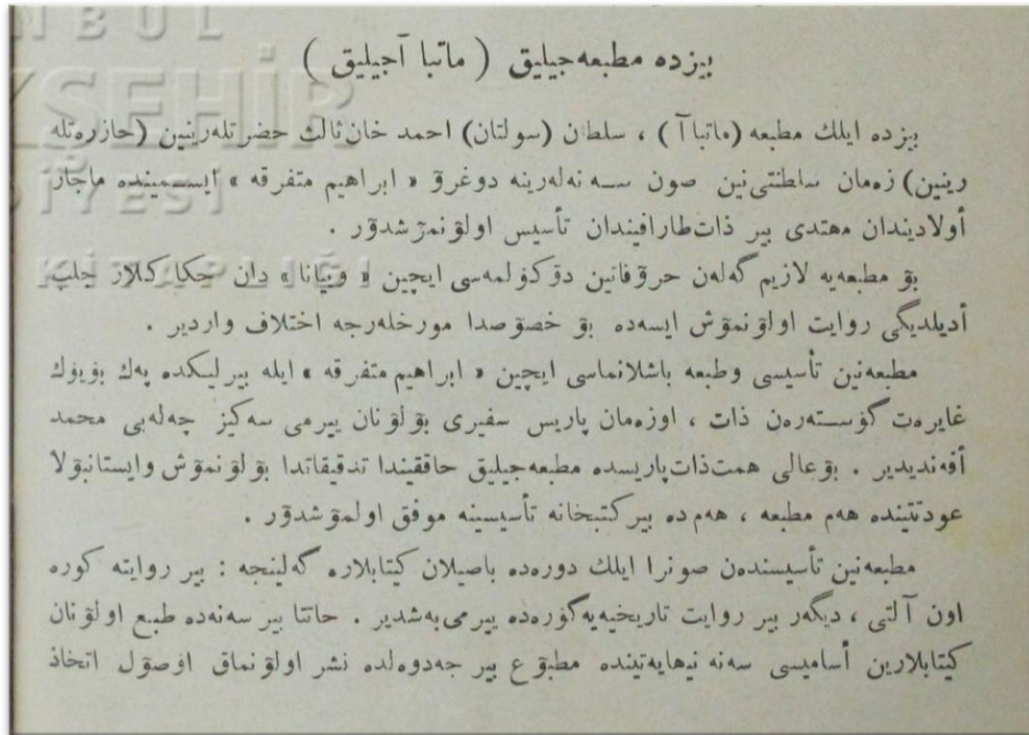 بیزده مطبعه‌جیلیق ( ماتبا آجیلیق )
بیزده ایلك مطبعه (ماتبا آ) ، سلطان (سولتان) احمد خان ثالث حضرتله‌رینین (حازره‌تله
رینین) زه‌مان سلطنتی‌نین صون سه نه‌له‌رینه دوغرۆ « ابراهیم متفرقه » ایسمینده ماجار
أولادیندان مهتدی بیر ذات طارافیندان تأسیس اولۆنمۆشدۆر .
بۆ مطبعه‌یه لازیم گه‌له‌ن حرۆفاتین دۆکۆلمه‌سی ایچین « ویانا» دان حکاکلار جلب
أدیلدیگی روایت اولۆنمۆش ایسه‌ده بۆ خصۆصدا مورخله‌رجه اختلاف واردیر .
مطبعه‌نین تأسیسی وطبعه باشلانماسی ایچین « ابراهیم متفرقه » ایله بیرلیکده په‌ك بۆیۆك
غایره‌ت گۆستەره‌ن ذات ، اوزه‌مان پاریس سفیری بۆلۆنان ییرمی سه‌کیز چه‌له‌بی محمد
أفه‌ندیدیر . بۆعالی همت ذات پاریسده مطبعه‌جیلیق حاققیندا تدقیقاتدا بۆلۆنمۆش وایستانبۆلا
عودتینده هه‌م مطبعه ، هه‌م ده بیر کتبخانه تأسیسینه موفق اولمۆشدۆر .
مطبعه‌نین تأسیسنده‌ن صونرا ایلك دوره‌ده باصیلان کیتابلاره گه‌لینجه : بیر روایته کوره
اون آلتی ، دیگه‌ر بیر روایت تاریخیه‌یه‌گۆره‌ده ییرمی‌به‌شدیر . حاتتا بیر سه‌نه‌ده طبع اولۆنان
کیتابلارین أسامیسی سه‌نه نیهایه‌تینده مطبۆع بیر جه‌دوه‌لده نشر اولۆنماق اۆصۆل اتخاذ